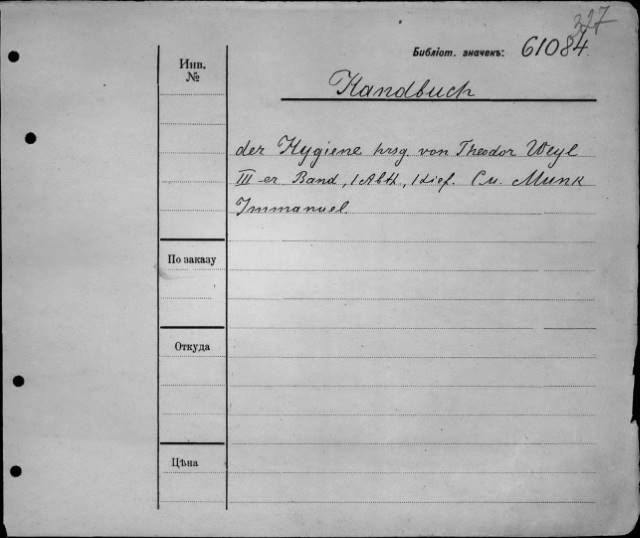 327
Библіот. значекъ: 61084.
Инв.
№
Handbuch
der Hygiene hrsg. von Theodor Weyl
III-er Band, 1 Abth., 1 Lief. См. Munk
Immanuel.
По заказу
Откуда
Цѣна